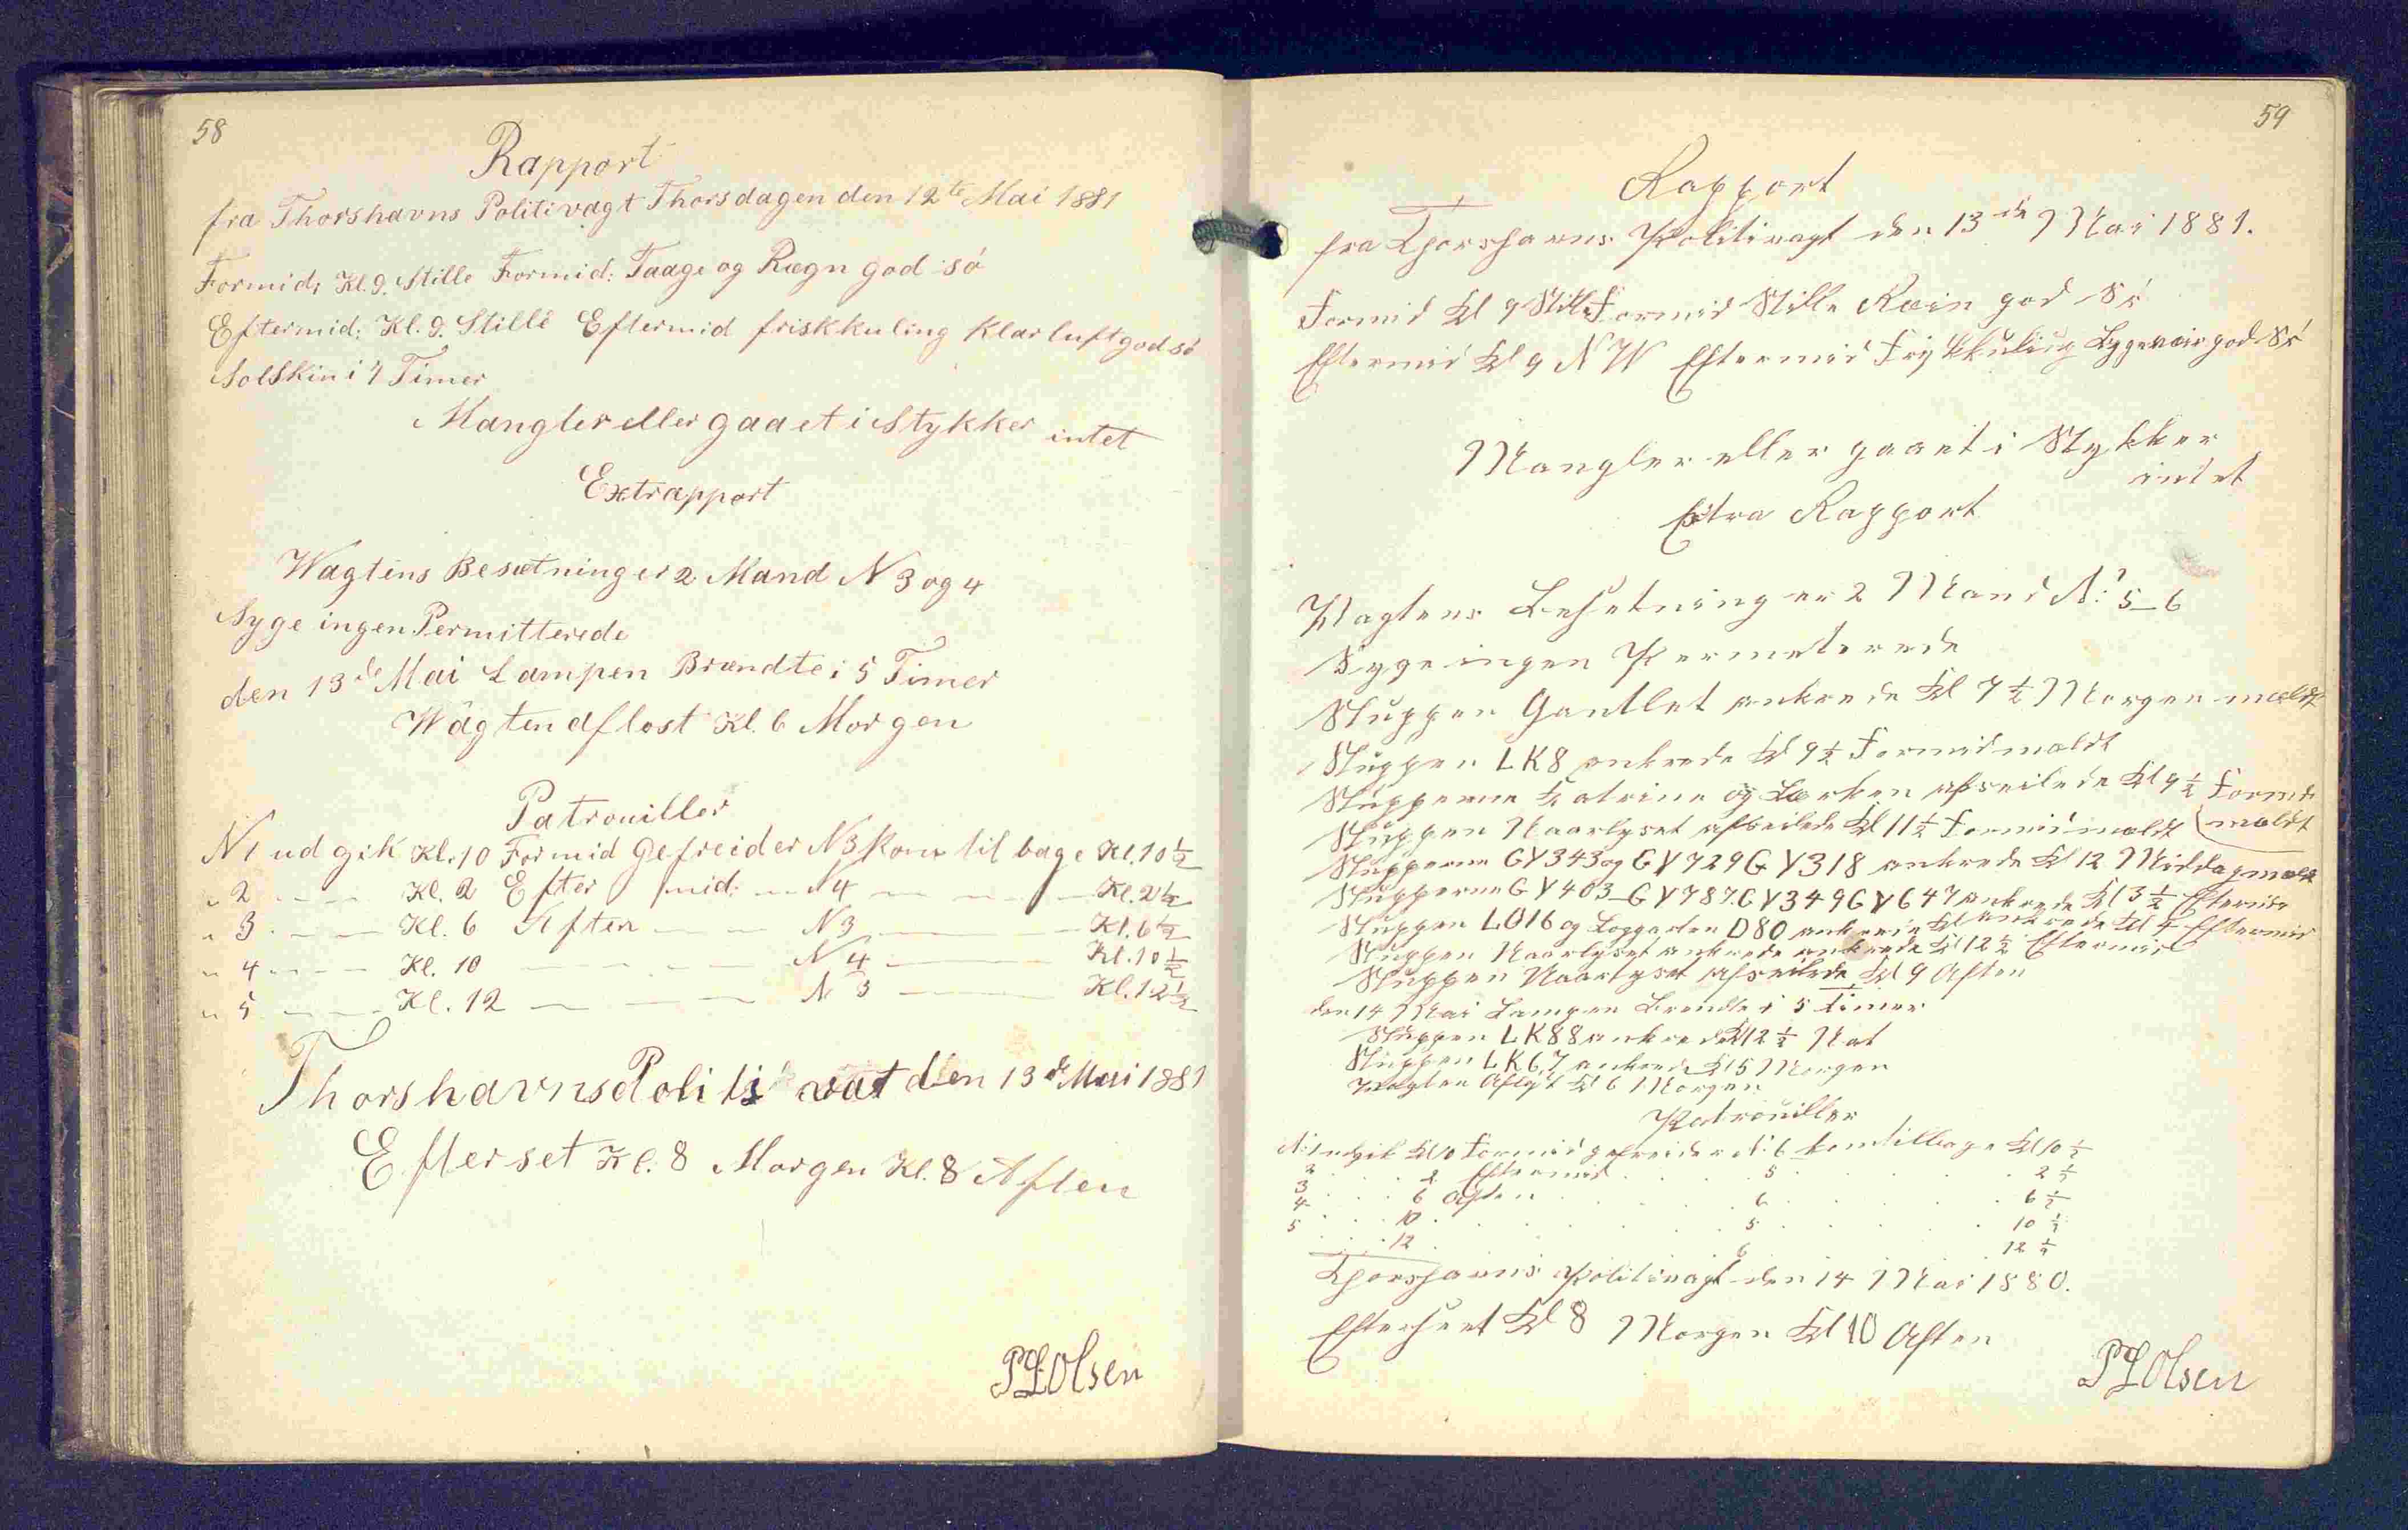 58
Rapport
fra Thorshavns Politivagt Thorsdagen den 12te Mai 1881
Formid: Kl. 9. Stille Formid: Taage og Rægn god sö
Eftermid: Kl. 9. Stille Eftermid friskkuling Klarluft god sö
Solskin i 4 Timer
Mangler eller gaaet i Stykker intet
Extrapport
Wagtens Besætning er 2 Mand N 3 og 4
Syge ingen Permitterede
den 13de Mai Lampen Brændte i 5 Timer
Wagten aflost Kl. 6 Morgen
Patrouiller
N 1 ud gik Kl. 10 Formid Gefreider N3 kom til bage Kl. 10 1/2
" 2 — — Kl. 2 Efter mid: — N4 — — — Kl. 2 1/2
" 3 — — Kl. 6 Aften — — N3 — — Kl. 6 1/2
" 4 — — Kl. 10 — — — N 4 — — Kl. 10 1/2
" 5 — — Kl. 12 — — — N 3 — — Kl. 12 1/2
Thorshavns Politi vat den 13de Mai 1881
Efterset Kl. 8 Morgen Kl. 8 Aften
PLOlsen
59
Rapport
fra Thorshavns Politivagt den 13de Mai 1881.
Formid Kl 9 Stille Formid Stille Rein god Sö
Eftermid Kl 9 NW Eftermid god Sö
Mangler eller gaaet i Stykker
intet
Extra Rapport
Wagtens Besetning er 2 Mand N: 5_6
Syge ingen Permeterede
Sluppen Gantlet ankrede Kl 7 1/2 Morgen mældt
Sluppen LK8 ankrede Kl 9 1/2 Formid mældt
Slupperne Katrine og Lerken afseilede Kl 9 1/2 Formid
Sluppen Naarlyset afseilede Kl 11 1/2 Formid mældt (mældt
Slupperne GY343 og GY729 GY318 ankrede Kl 12 Middag mældt
Slupperne GY403_GY787.GY349GY647 ankrede Kl 3 1/2 Eftermid
Sluppen LO16 og D80 ankrede Kl 4 Eftermid
Sluppen Naarlyset ankrede ankrede Kl 12 1/2 Eftermid
Sluppen Naarlyset afseilede Kl 9 Aften
den 14 Mai Lampen Brendte i 5 timer
Sluppen LK88 ankrede Kl 12 1/2 Nat
Sluppen LK67 ankrede Kl 5 Morgen
Wagten Kl 6 Morgen
Patrouiller
N: 1 udgik Kl 10 Formid gefreider N: 6 kom tilbage Kl 10 1/2
2 . . . 2 Eftermid . . . 5 . . . 2 1/2
3 . . . 6 Aften . . . 6 . . . 6 1/2
4 . . . 10 . . . 5 . . . 10 1/2
5 . . . 12 . . . 6 . . . 12 1/2
Thorshavns Politivagt den 14 Mai 1880.
Efterseet Kl 8 Morgen Kl 10 Aften
PLOlsen